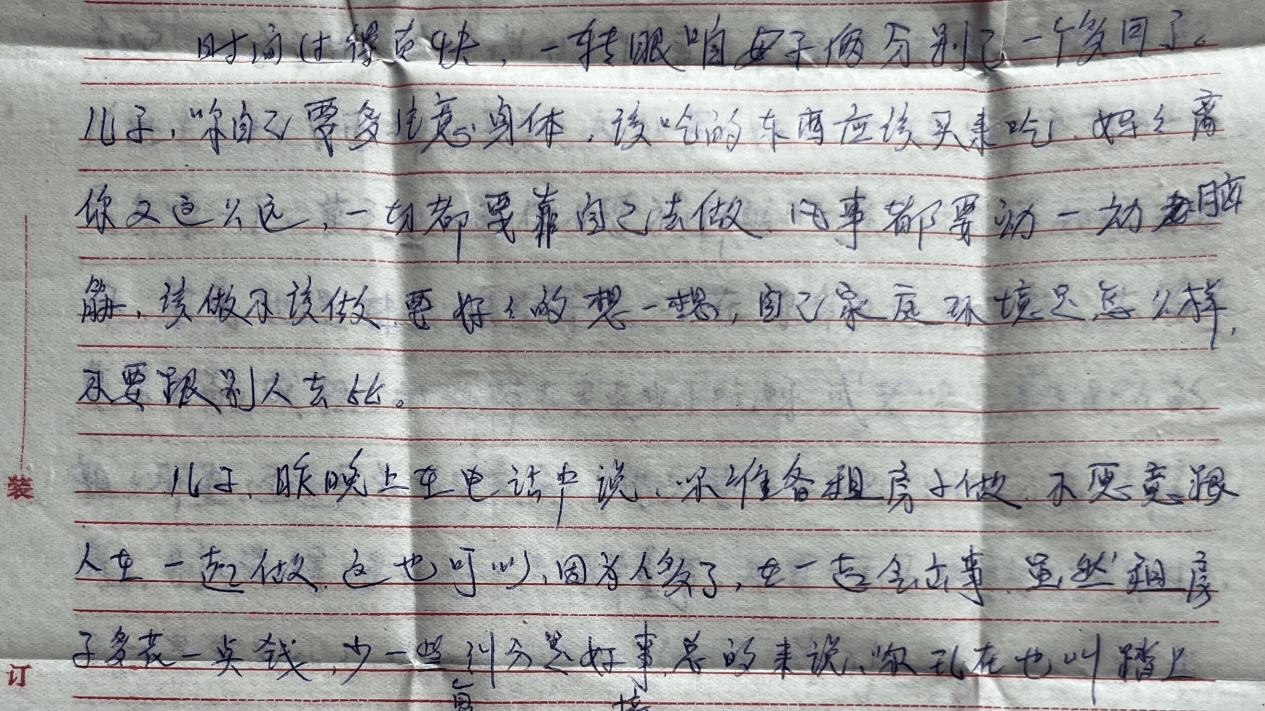 时间过得真快,一转眼咱母子俩分别已一个多月了。
儿子,你自己要多注意身体,该吃的东西应该买来吃,妈妈离
你又这么远,一切都要靠自己去做,凡事都要动一动脑
筋,该做不该做,要好好的想一想,自己家庭环境是怎么样,
不要跟别人去比。
儿子,昨晚上在电话中说,你准备租房子做,不愿意跟
人在一起做,这也可以,因为人多了,在一起会出事,虽然租房
子多花一点钱,少一些纠分是好事,总的来说,你现在也叫踏上
装
订